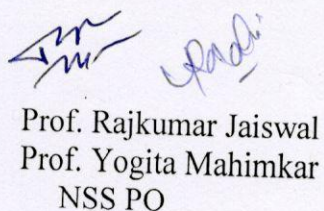 Prof. Rajkumar Jaiswal
Prof. Yogita Mahimkar
NSS PO